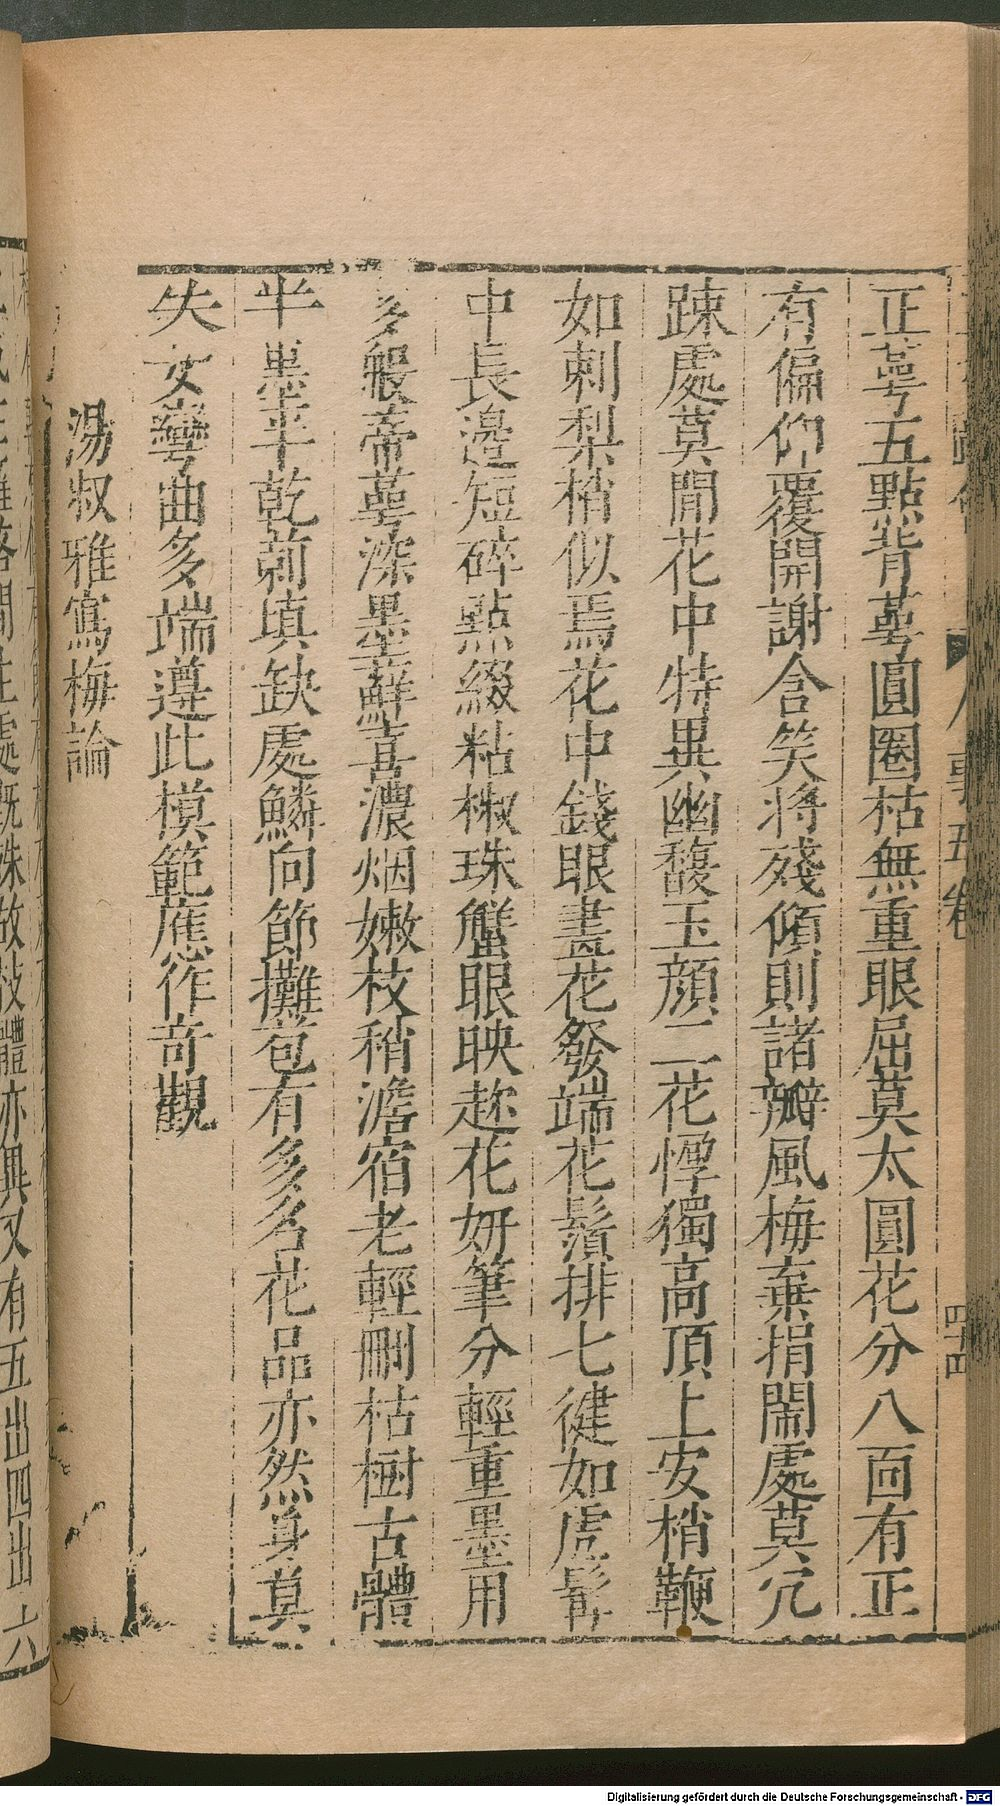 正萼五點背萼圓圈枯無重眼屈莫太圓花分八面有正
有偏仰覆開謝含笑將殘傾則諸瓣風梅棄捐鬧處莫冗
踈處莫閒花中特異幽馥玉顔二花慳獨高頂上安梢鞭
如刺梨梢似焉花中錢眼畫花發端花鬚排七健如虎髯
中長邊短碎點綴粘椒珠蟹眼映趂花妍筆分輕重墨用
多般蒂萼深墨蘚喜濃烟嫩枝稍澹宿老輕刪枯樹古體
半墨半乾剪填缺處鱗向節攤苞有多名花品亦然身莫
失女彎曲多端遵此模範應作奇觀
湯叔雅寫梅論
五卷
四十四
Digitalisierung gefördert durch die Deutsche Forschungsgemeinschaft - DFG